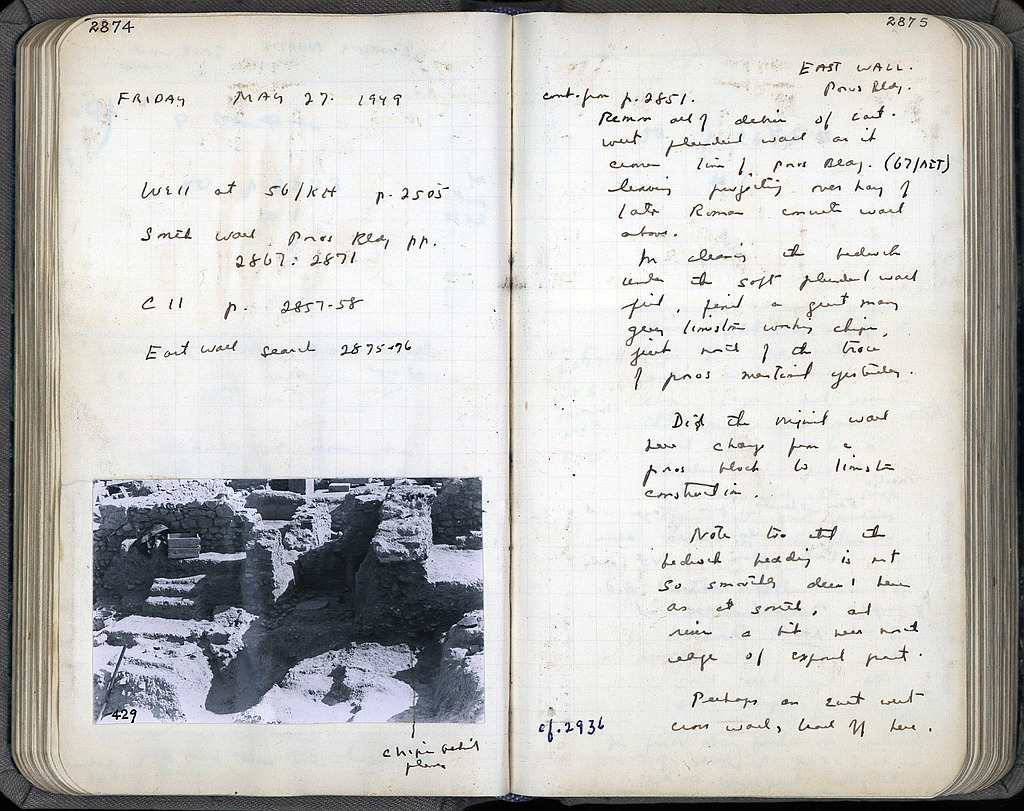 2874
FRIDAY MAY 27. 1949
Well at 56/KH p. 2505
South wall Poros Bldg pp.
2867: 2871
C 11 p. 2857-58
East wall search 2875-76
429
chips behind
2875
EAST WALL.
Poros Bldg.
cont. from p. 2851.
Remove all of debris of east-
west plundered wall as it
crosses line of Poros Bldg. (67/ΛΣΤ)
leaving projecting over hang of
late Roman concrete wall
above.
In cleaning the bedrock
under the soft plundered wall
fill, find a great many
grey limestone working chips,
just north of the trace
of poros mentioned yesterday.
Did the original wall
here change from a
poros block to limestone
construction.
Note too that the
bedrock bedding is not
so smoothly dressed here
as at south, and
rises a bit near north
edge of exposed part.
Perhaps an east west
cross wall, lead off here.
cf. 2936